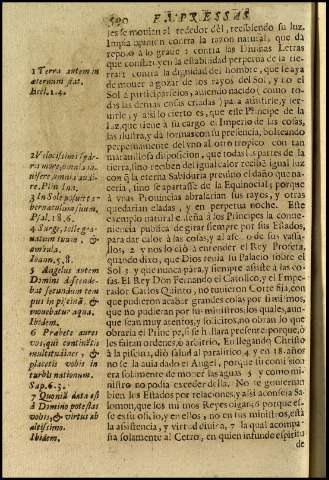 590 EXPRESSAS
les se movian al rededor dèl, recibiendo su luz.
Impia opinion contra la razon natural, que dà
reposo à lo grave: contra las Divinas Letras
que constituyen la estabilidad perpetua de la tie-
rra 1: contra la dignidad del hombre, que se aya
de mover à gozar de los rayos del Sol, y no el
Sol à participarselos, aviendo nacido (como to-
das las demàs cosas criadas) para assistirle, y ser-
virle; y assi lo cierto es, que este Principe de la
luz, que tiene à su cargo el Imperio de las cosas,
las ilustra, y dà formas con su presencia, bolteando
perpetuamente del vno al otro tropico con tan
maravillosa disposicion, que todas las partes de la
tierra, sino reciben del igual calor, reciben igual luz
con la eterna Sabiduria previno el daño que na-
ceria, sino se apartasse de la Equinocial; porque
à vnas Provincias abrasarian sus rayos, y otras
quedarian eladas, y en perpetua noche. Este
exemplo natural enseña à los Principes la conve-
niencia publica de girar siempre por sus Estados,
para dar calor à las cosas, y al afecto de sus vassa-
llos, 2 y nos lo diò à entender el Rey Profeta,
quando dixo, que Dios tenia su Palacio sobre el
Sol 3 y que nunca pàra, y siempre assiste à las co-
sas. El Rey Don Fernando el Catolico, y el Empe-
rador Carlos Quinto, no tuvieron Corte fija, con
que pudieron acabar grandes cosas por si mismos,
que no pudieran por sus ministros, los quales, aun-
que sean muy atentos, y solicitos, no obran lo que
obraria el Principe, si se hallara presente; porque, ò
les faltan ordenes, ò arbitrio. En llegando Christo
à la piscina, diò salud al paralitico, 4 y en 18. años
no se la avia dado el Angel, porque su comission
era solamente de mover las aguas 5 y como mi-
nistro no podia exceder della. No se goviernan
bien los Estados por relaciones, y assi aconseja Sa-
lomon, que los mismos Reyes oigan; 6 porque es-
se es su oficio, y en ellos, no en sus ministros, està
la assistencia, y virtud divina, 7 la qual acompa-
ña solamente al Cetro, en quien infunde espiritu
de
1 Terra autem in
æternum stat.
Eccl. 1. 4.
2 Velocissimi syde-
ris more, omnia in-
visere, omnia audi-
re. Plin. Iun.
3 In Sole posuit ta-
bernaculum suum.
Psal. 18. 6.
4 Surge, tolle gra-
batum tuum, &
ambula.
Ioann. 5. 8.
5 Angelus autem
Domini descende-
bat secundum tem-
pus in piscina, &
movebatur aqua.
Ibidem.
6 Præbete aures
vos, qui continetis
multitudines, &
placetis vobis in
turbis nationum.
Sap. 6. 3.
7 Quoniã data est
à Domino potestas
vobis, & virtus ab
altissimo.
Ibidem.